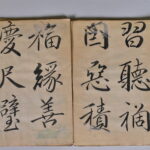 習聽禍
因惡積
福緣善
慶尺璧